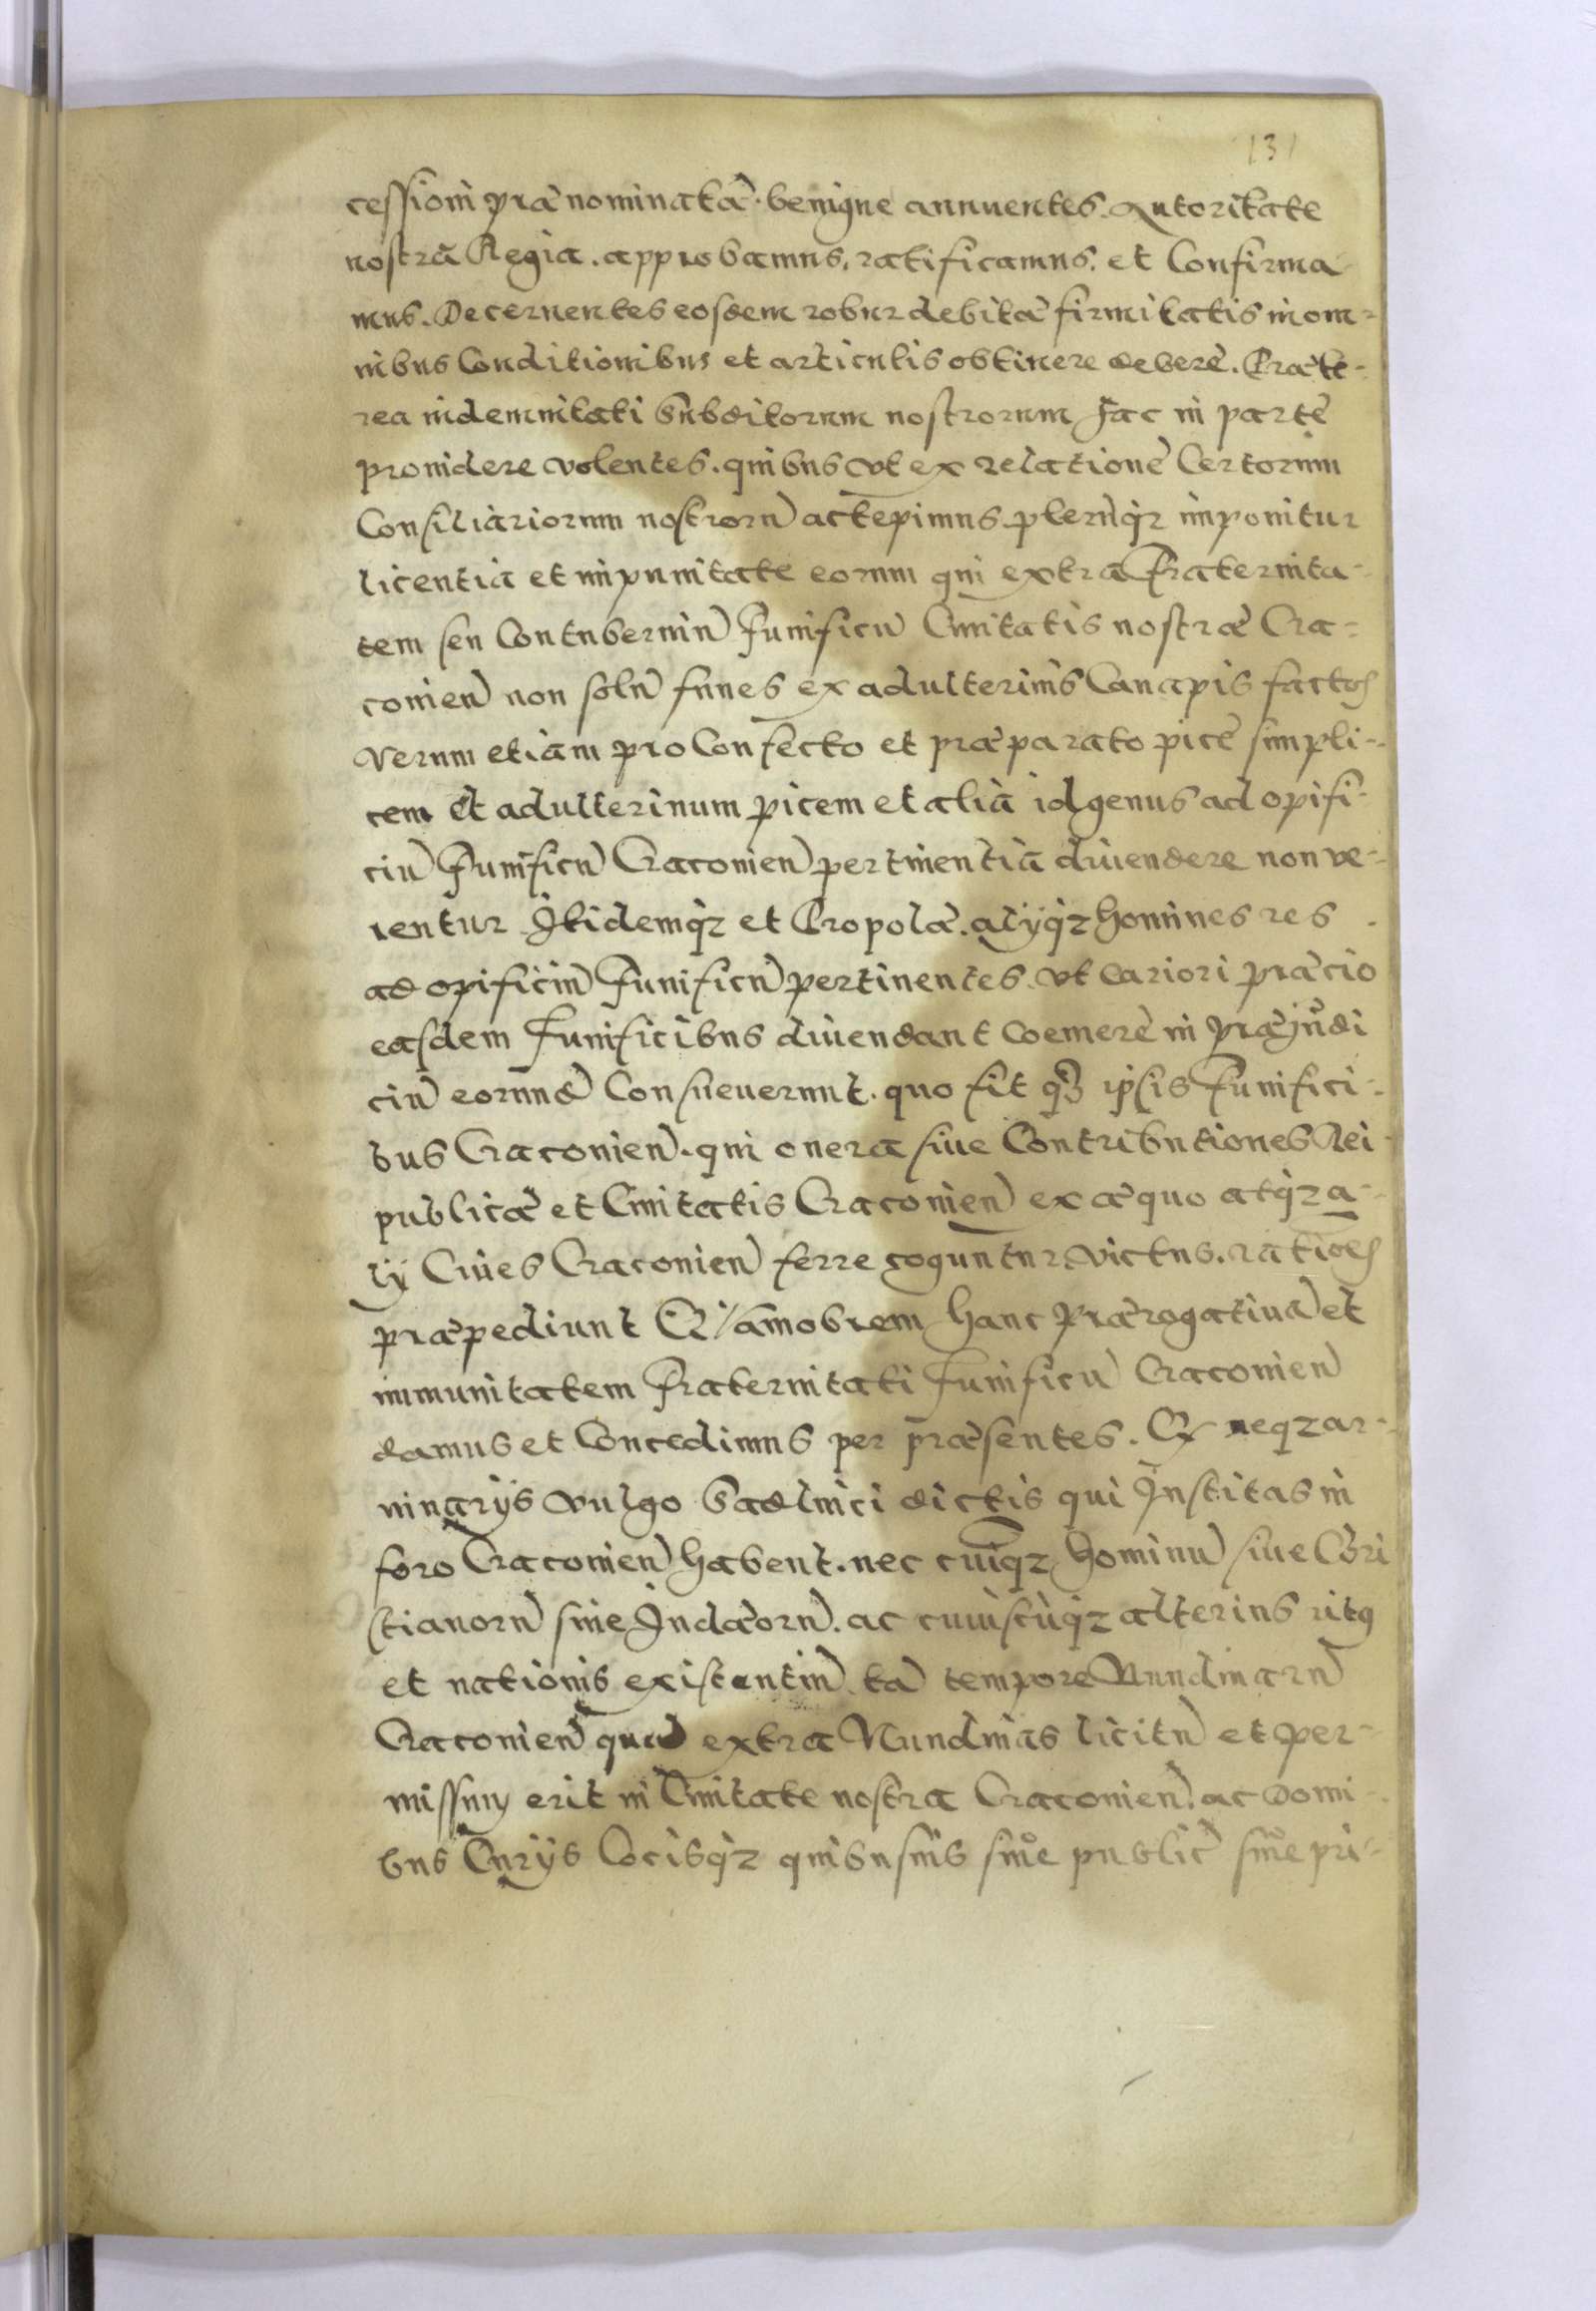 131
cessioni prænominatæ. benigne annuentes. Autoritate
nostra Regia. approbamus, ratificamus. et Confirma
mus. Decernentes eosdem robur debitæ firmitatis in om-
nibus Conditionibus et articulis obtinere debere. Præte-
rea indemnitati Subditorum nostrorum hac in parte
prouidere volentes. quibus vt ex relatione Certorum
Consiliariorum nostrorū accepimus. plerūqz imponitur
licentia et impunitate eorum qui extra Fraternita-
tem seu Contuberniū Funificū Ciuitatis nostræ Cra-
couien̄ non solū funes ex adulterinis Canapis factos
verum etiam pro Confecto et præparato pice simpli-
cem et adulterinum picem et alia id genus ad opifi-
ciū Funificū Cracouien̄ pertinentia diuendere non ve-
rentur Itidemqz et Propolæ. alijqz homines res
ad opificiū Funificū pertinentes. vt cariori præcio
easdem Funificibus diuendant coemere in præiudi
ciū eorundē Consueuerunt. quo fit qz ipsis Funifici-
bus Cracouien̄. qui onera siue Contributiones Rei-
publicæ et Ciuitatis Cracouien̄ ex æquo atqz a-
lij Ciues Cracouien̄ ferre coguntur. victus. rationes
præpediunt Quamobrem hanc prærogatiuā et
immunitatem Fraternitati Funificū Cracouien̄
damus et Concedimus per præsentes. Qz neqz ar-
ninarijs vulgo Sadlnici dictis qui Institas in
foro Cracouien̄ habent. nec cuiqz hominū siue Chri
stianorū siue Iudæorū. ac cuiuscūqz alterius ritus
et nationis existentiū. tā tempore Nundinarū
Cracouien̄ quā extra Nundinas licitū et per-
missum erit in Ciuitate nostra Cracouien̄. ac Domi-
bus Curijs Locisqz quibusuis siue public̄ siue pri-